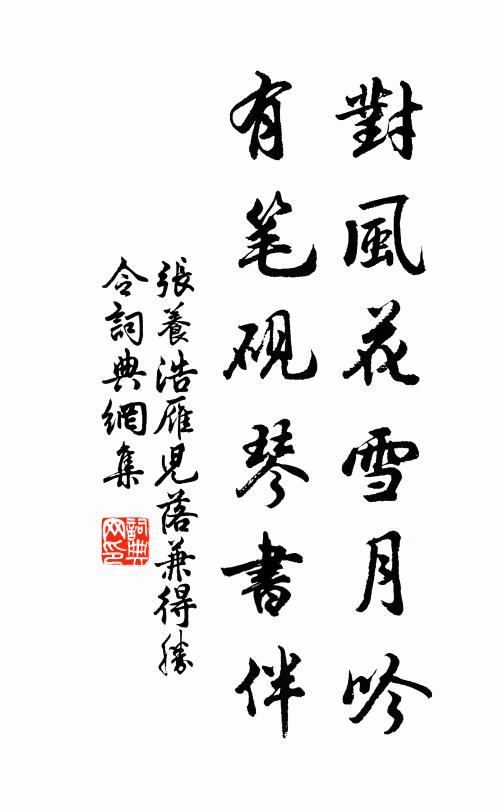 對風花雪月吟
有笔硯琴書伴
張養浩雁児落兼得勝
令詞典網集
詞典网印